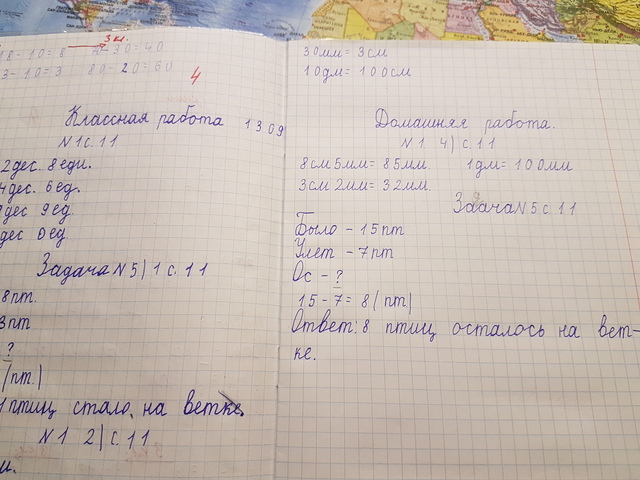 3 кл.
18-10=8 -30=40
3-10=3 80-20=60
4
Классная работа 13.09
N1 с.11
2дес. 8еди.
4дес. 6ед.
дес 9ед.
дес 0ед
Задача N5) 1 с.11
8пт.
3пт
?
(пт.)
птиц стало на ветке.
N1 2) с.11
м.
30мм=3см
10дм=100см
Домашняя работа.
N1 4) с.11
8см5мм=85мм 1дм=100мм
3см2мм=32мм.
Задача N5 с.11
Было - 15пт
Улет - 7пт
Ос - ?
15-7=8(пт)
Ответ: 8 птиц осталось на вет-
ке.